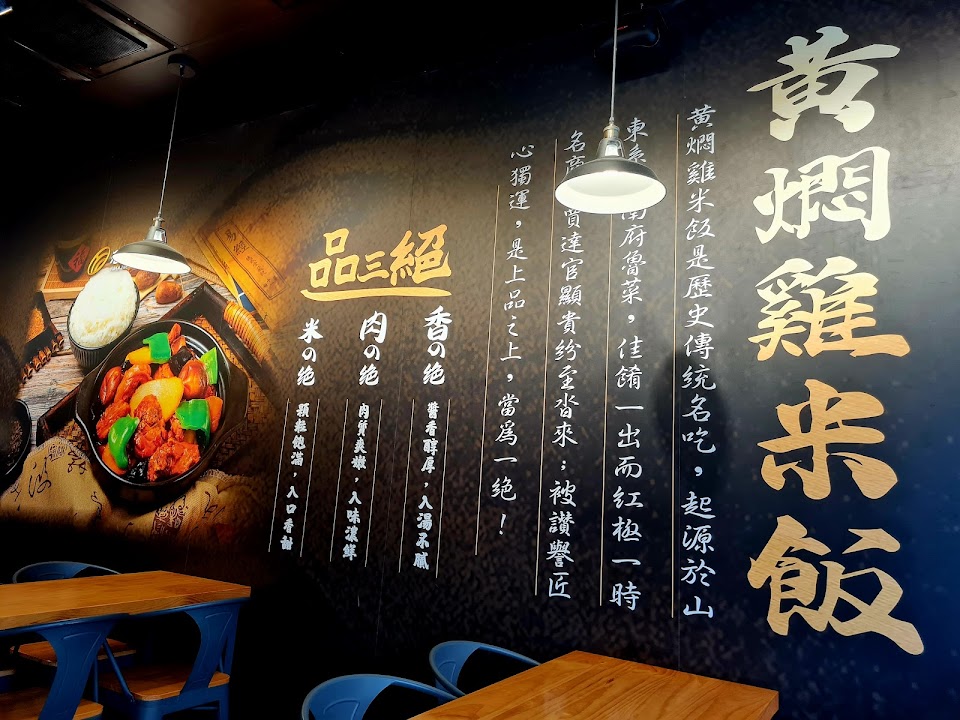 黄燜雞米飯
黄燜雞米飯是歷史傳統名吃，起源於山
東 南府魯菜，佳餚一出而紅極一時
名 賈達官顯貴紛至沓來；被讚譽匠
心獨運，是上品之上，當為一絕！
品三絕
香の绝
醬香醇厚，入湯不膩
肉の绝
肉質爽嫩，入味濃鮮
米の绝
顆粒飽滿，入口香甜